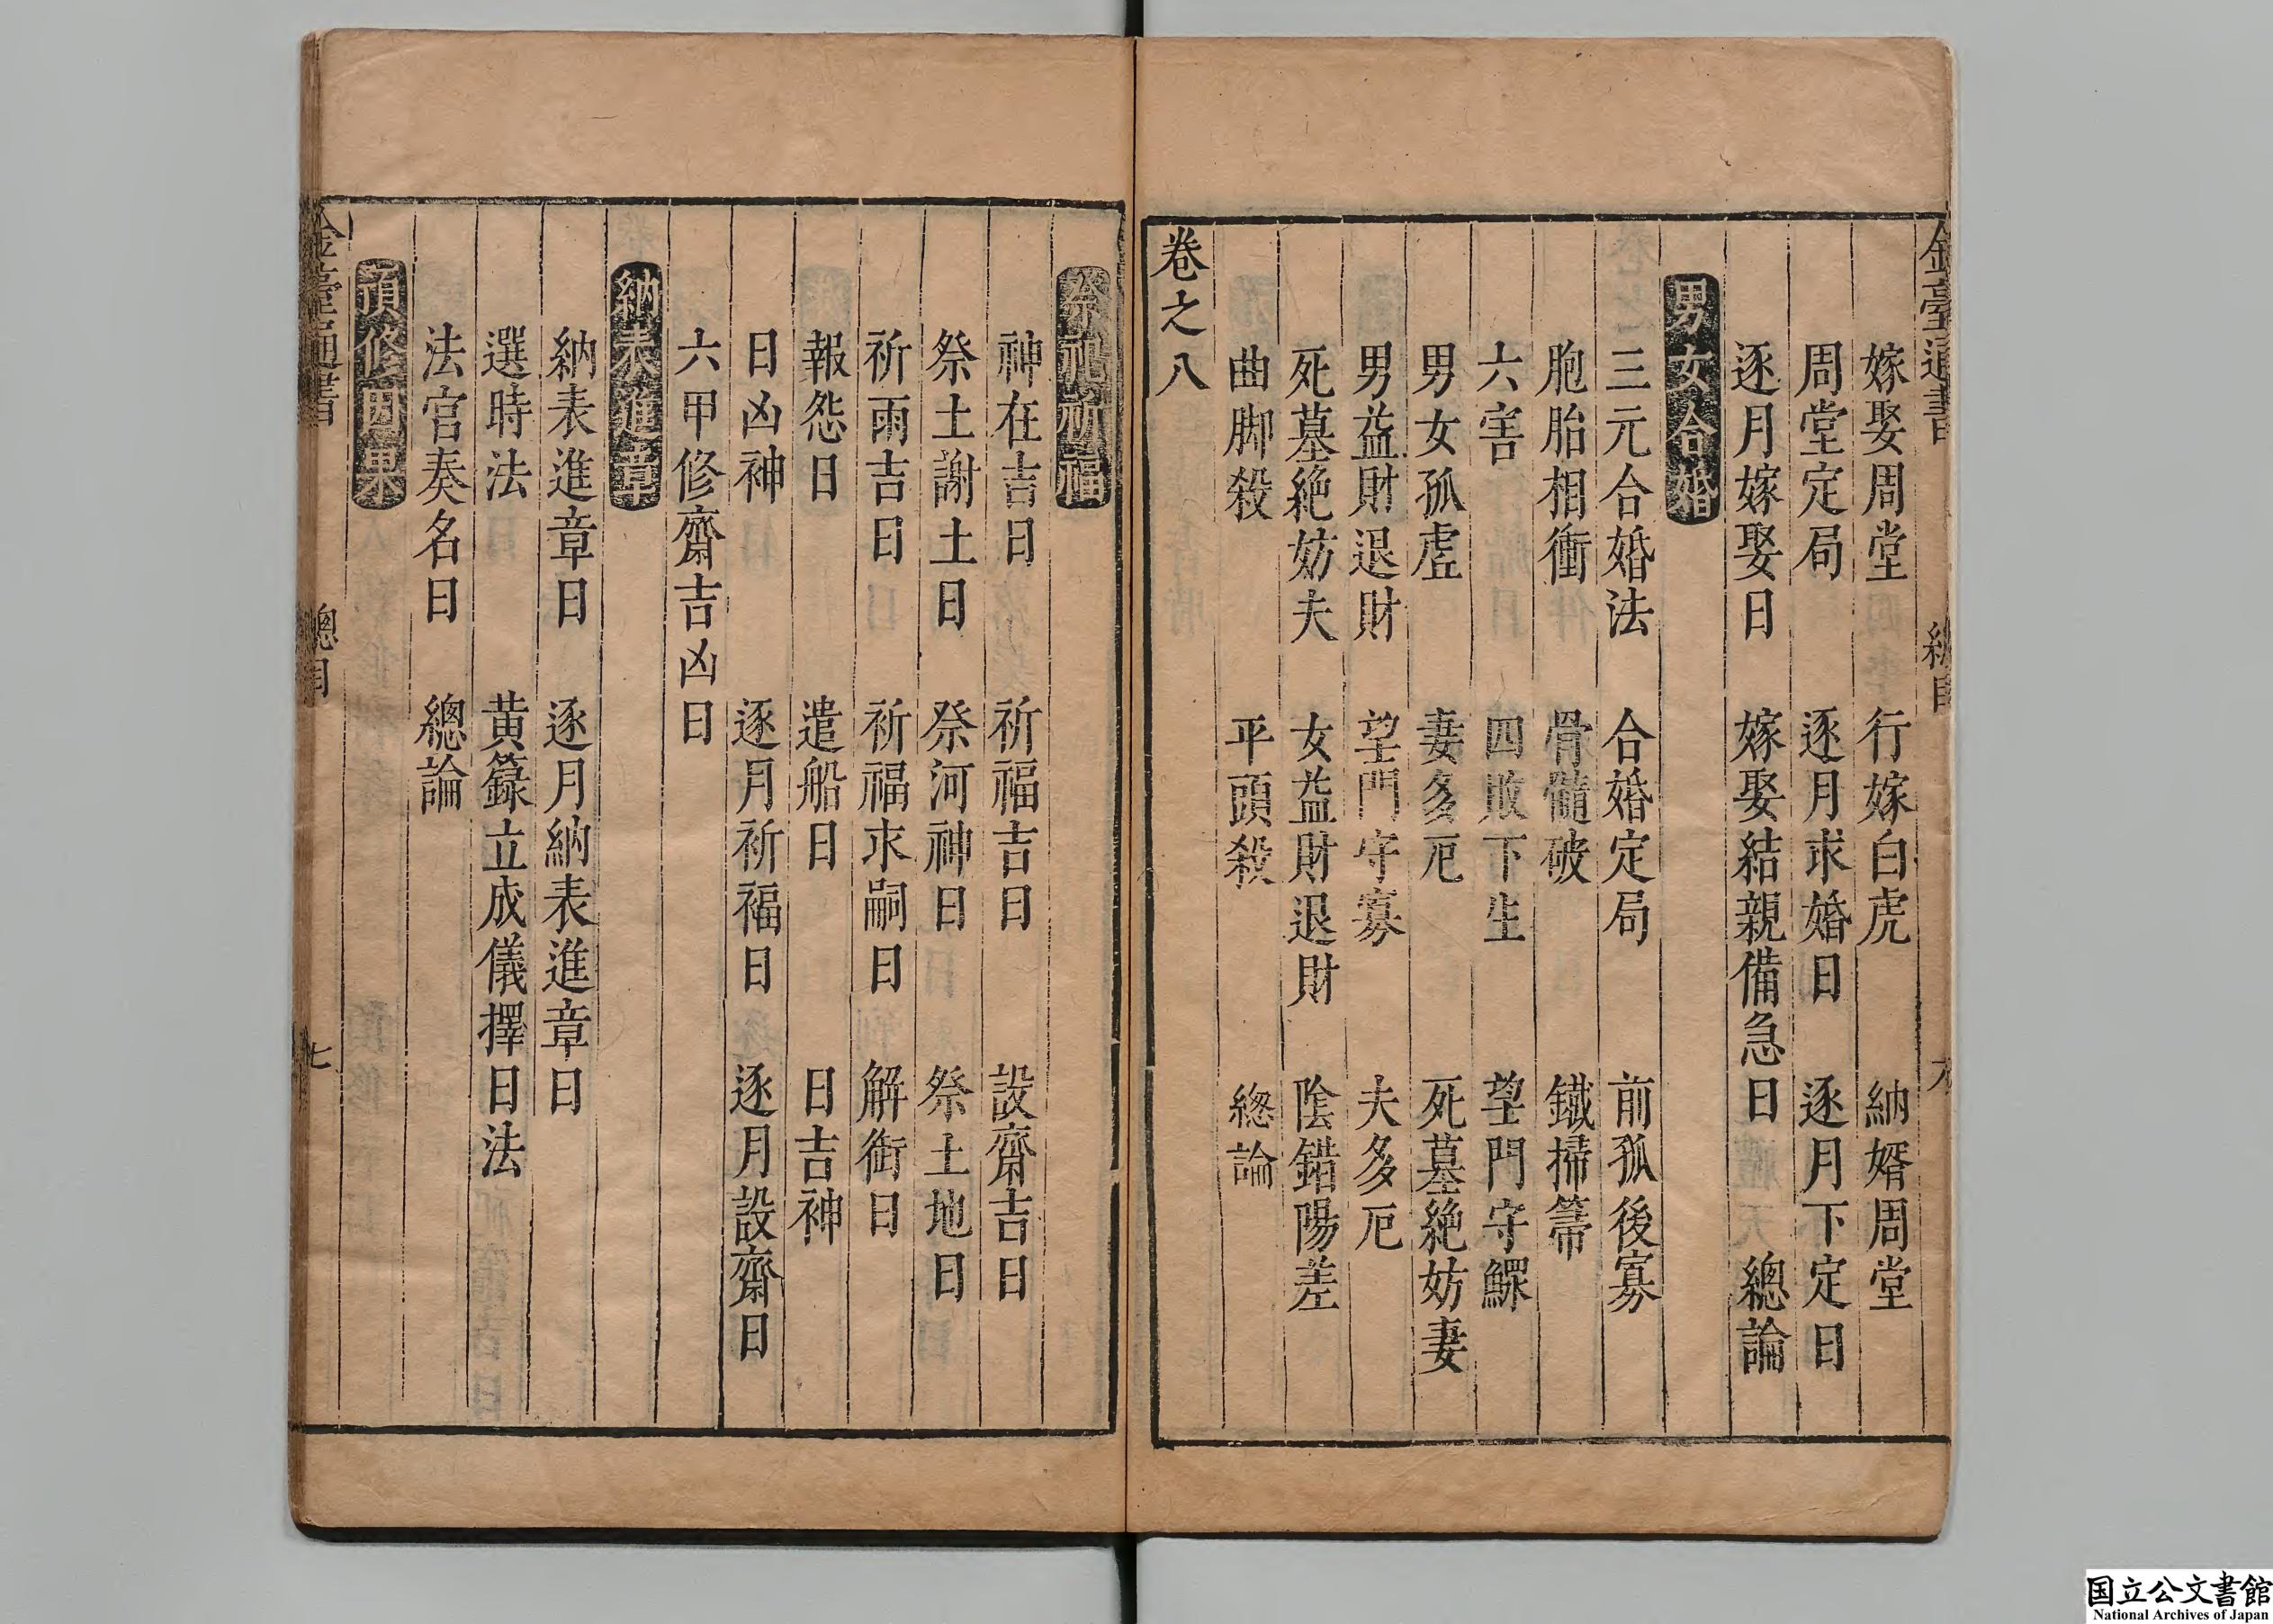 嫁娶周堂　行嫁白虎　納婿周堂
周堂定局　逐月求婚日　逐月下定日
逐月嫁娶日　嫁娶結親備急日　總論
男女合婚
三元合婚法　合婚定局　前孤後寡
胞胎相衝　骨髓破　鐵掃箒
六害　四敗下生　望門守鰥
男女孤虛　妻多厄　死墓絶妨妻
男益財退財　望門守寡　夫多厄
死墓絶妨夫　女益財退財　陰錯陽差
曲脚殺　平頭殺　總論
卷之八
祭祀祈福
神在吉日　祈福吉日　設齋吉日
祭土謝土日　祭河神日　祭土地日
祈雨吉日　祈福求嗣日　解衘日
報怨日　遣船日　日吉神
日凶神　逐月祈福日　逐月設齋日
六甲修齋吉凶日
納表進章
納表進章日　逐月納表進章日
選時法　黄籙立成儀擇日法
法官奏名日　總論
預修因果
總目
七
国立公文書館
National Archives of Japan